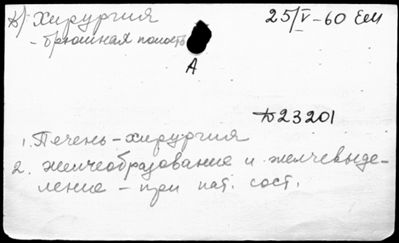 Ю) Хирургия
- брюшная полость
25/V-60 Ем
А
Д23201
1. Печень - хирургия
2. Желчеобразование и желчевыде-
ление - при пат. сост.